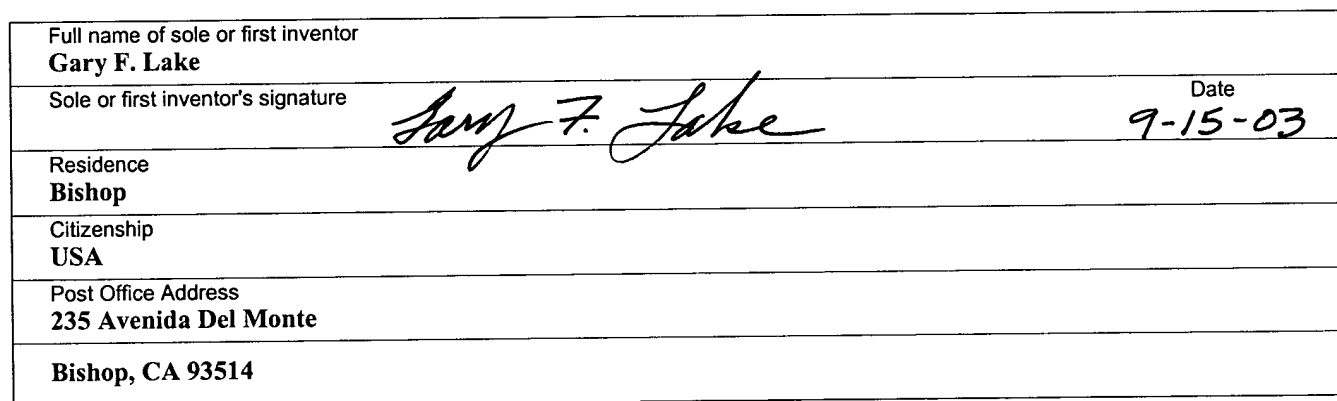 Full name of sole or first inventor
Gary F. Lake
Sole or first inventor's signature
Gary F. Lake
Date
9-15-03
Residence
Bishop
Citizenship
USA
Post Office Address
235 Avenida Del Monte
Bishop, CA 93514